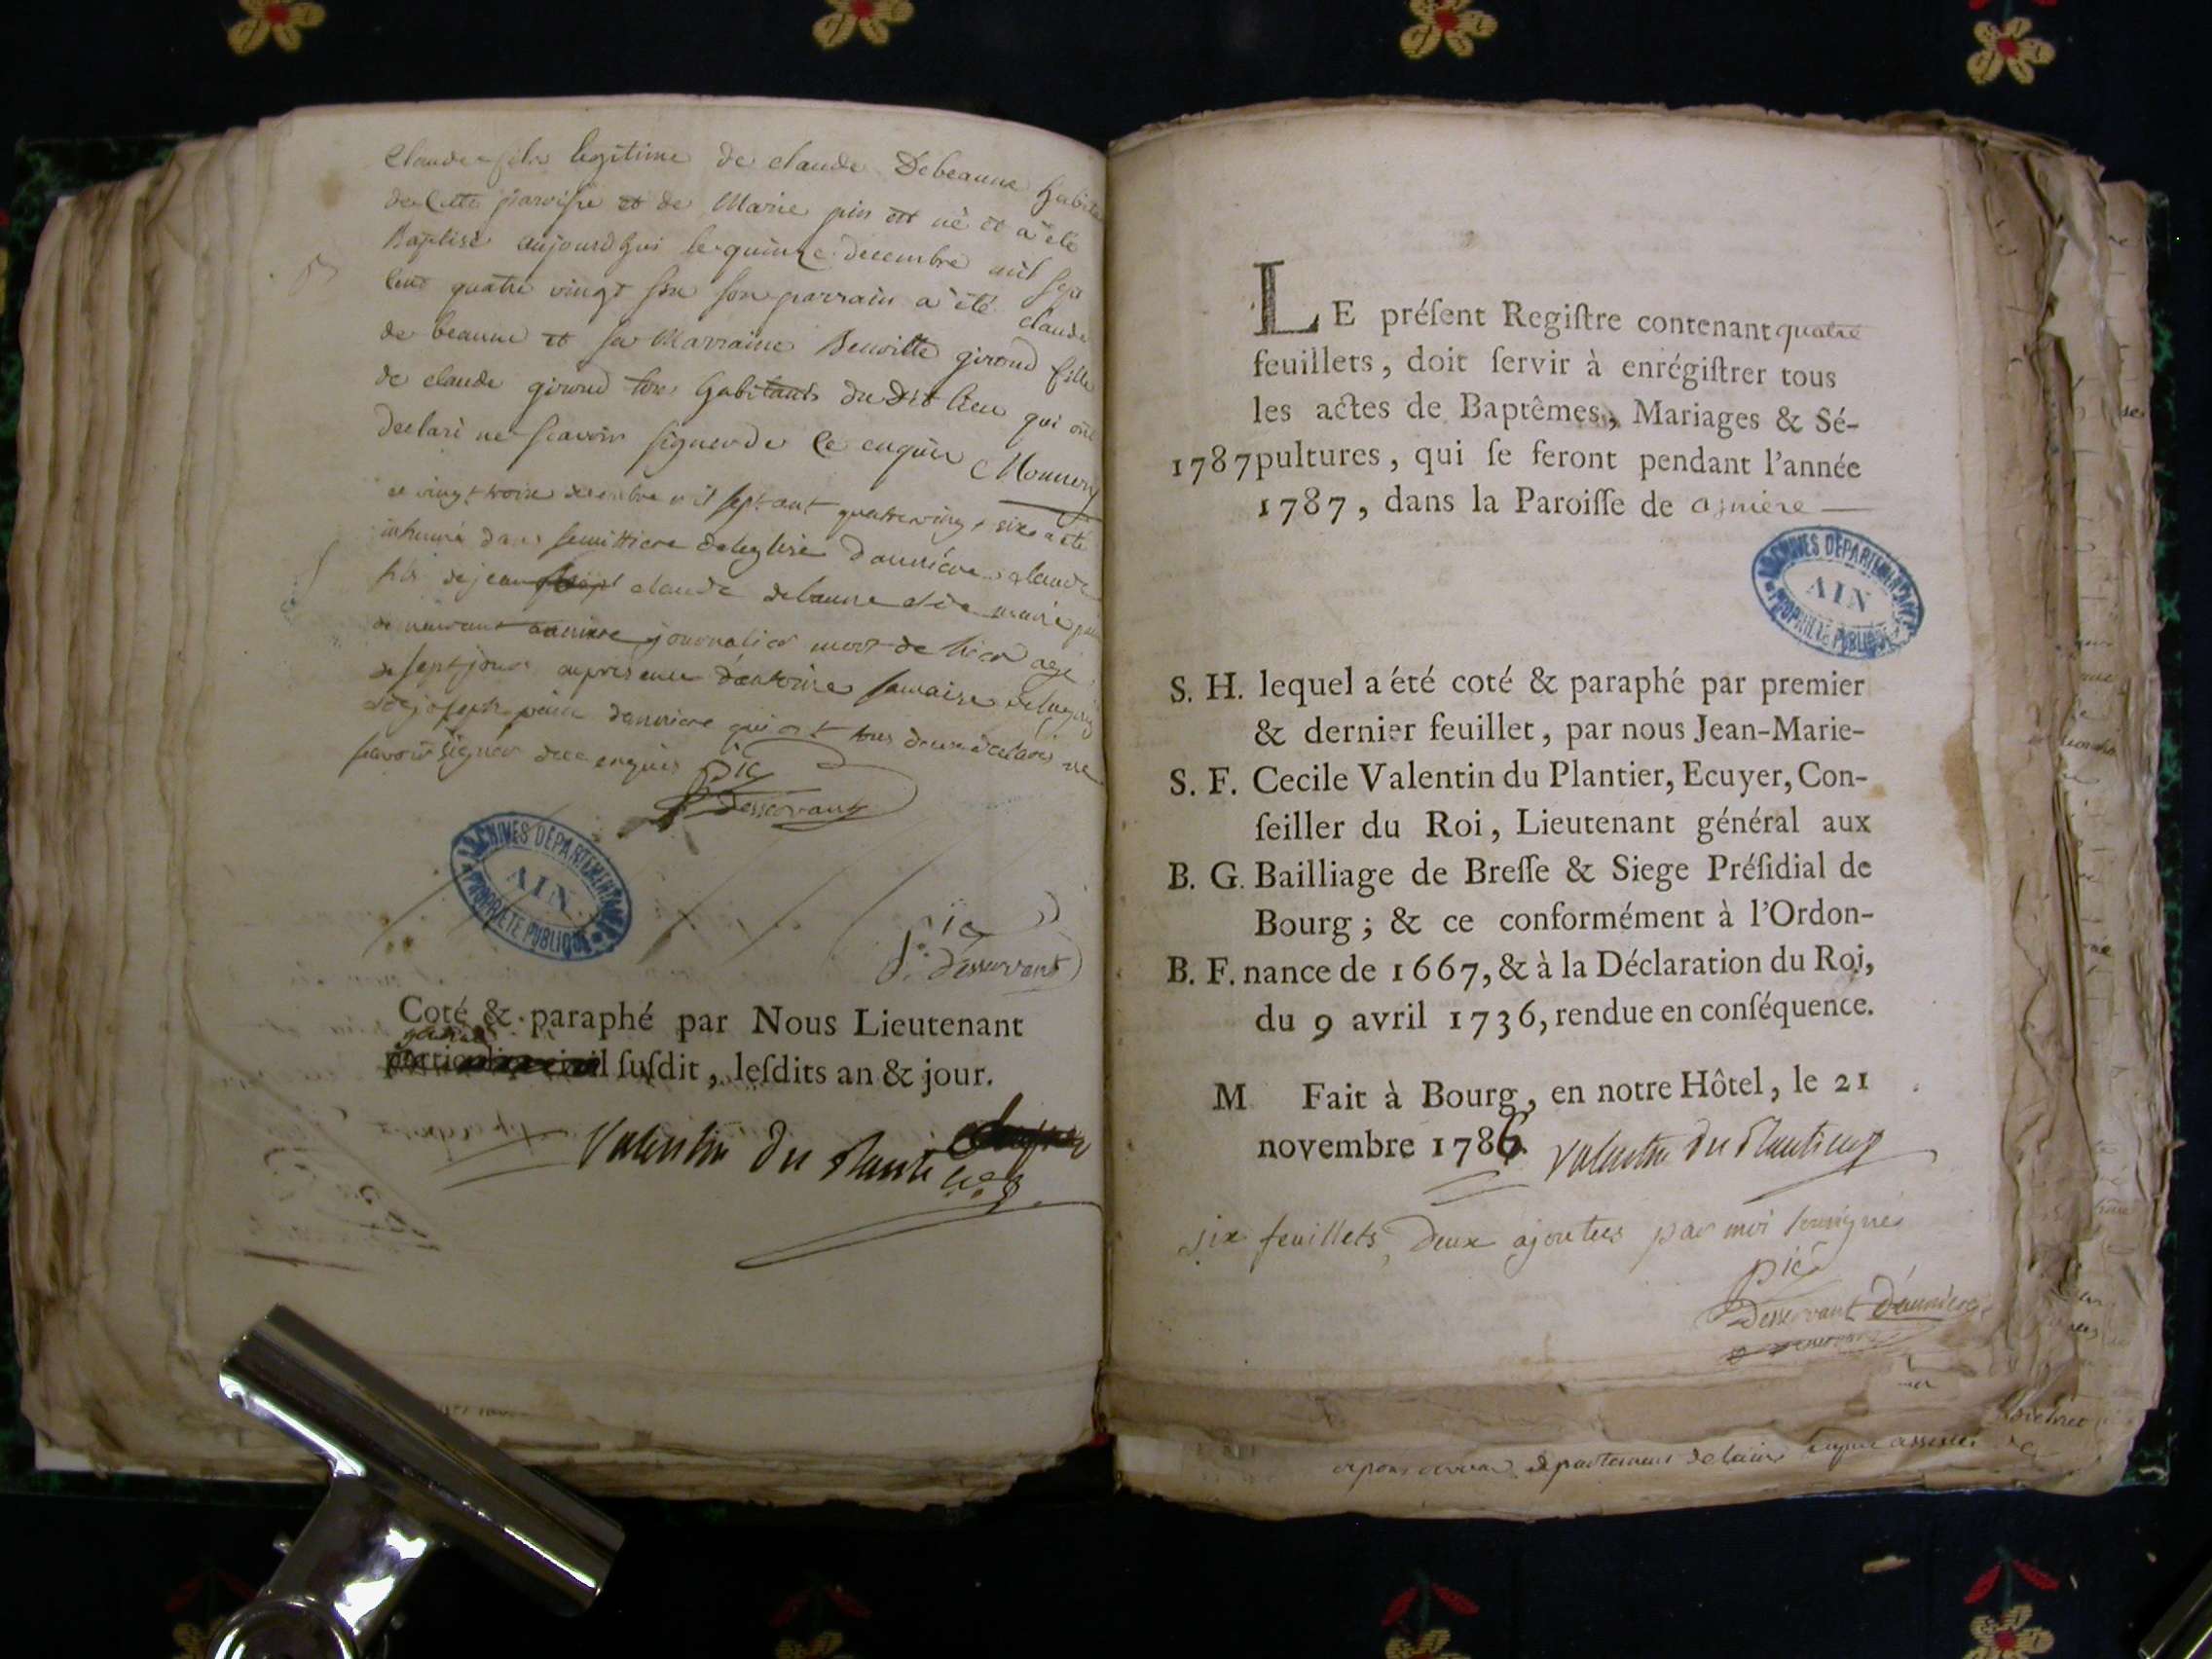 Claude fils legitime de claude Debeaune habita
de Cette paroisse et de Marie pin est né et a été
Baptisé aujourdhui le quinze decembre mil sept
Cent quatre vingt six son parrain a été claude
de beaune et sa Marraine Benoitte giroud fille
de claude giroud tous habitants du Dit lieu qui ont
declaré ne scavoir signer de ce enquis Monnery
ce vingt trois decembre mil sept cent quatre vingt six a été
inhumé dans semittiere de leglise danniere claude
fils de jean claude debaune et de marie pin
demeurant anniere journalier mort de hier agé
de sept jours en presence d'antoine
et de joseph danniere qui ont tous deux declarés ne
scavoir signer de ce enquis Pic
Desservant
ARCHIVES DÉPARTEMENTALES
AIN
PROPRIÉTÉ PUBLIQUE
Pic
Desservant
Coté & paraphé par Nous Lieutenant
ſuſdit, leſdits an & jour.
Valentin du Plantier
LE préſent Regiſtre contenant quatre
feuillets, doit ſervir à enrégiſtrer tous
les actes de Baptêmes, Mariages & Sé-
1787 pultures, qui ſe feront pendant l'année
1787, dans la Paroiſſe de asniere
ARCHIVES DÉPARTEMENTALES
AIN
PROPRIÉTÉ PUBLIQUE
S. H. lequel a été coté & paraphé par premier
& dernier feuillet, par nous Jean-Marie-
S. F. Cecile Valentin du Plantier, Ecuyer, Con-
ſeiller du Roi, Lieutenant général aux
B. G. Bailliage de Breſſe & Siege Préſidial de
Bourg; & ce conformément à l'Ordon-
B. F. nance de 1667, & à la Déclaration du Roi,
du 9 avril 1736, rendue en conſéquence.
M Fait à Bourg, en notre Hôtel, le 21
novembre 1786 Valentin du Plantier
six feuillets, deux ajoutees par moi soussigné
Pic
Desservant d'anniere
departement de lain